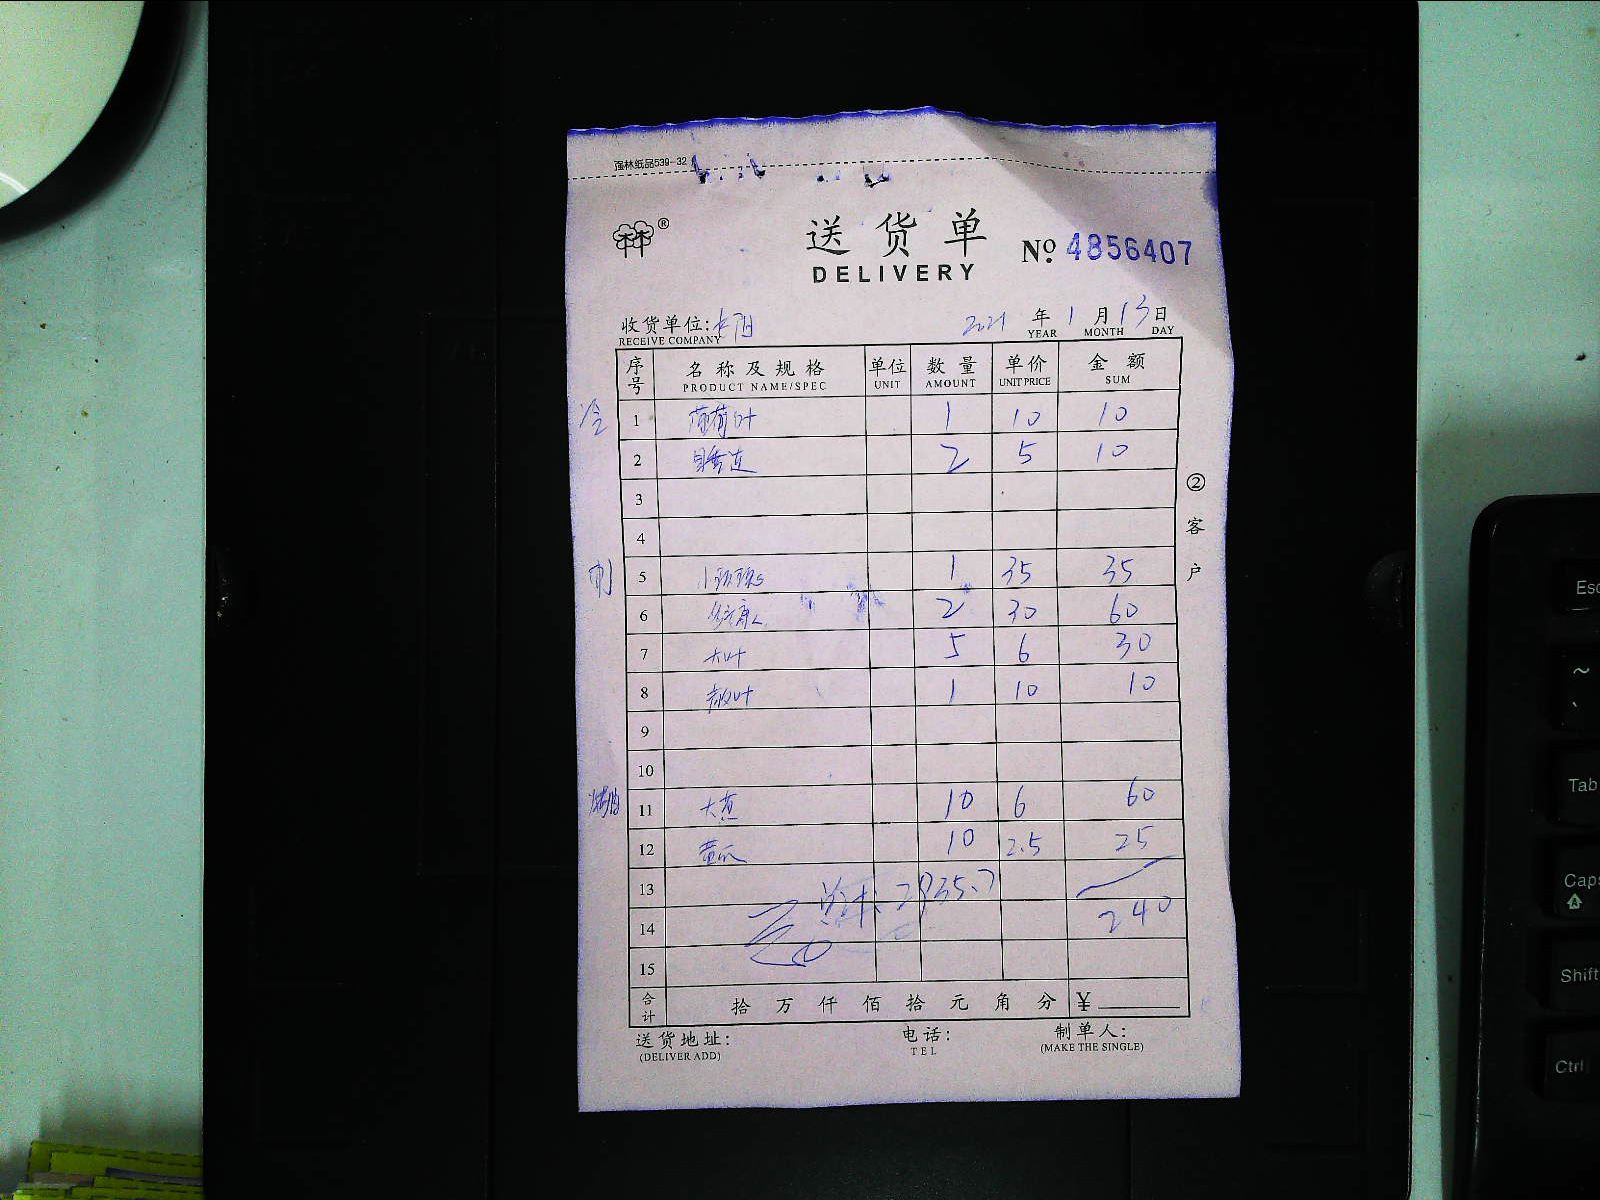 强林纸品539-32
®
送货单
DELIVERY
No. 4856407
收货单位: 2021 年 1 月 13 日
RECEIVE COMPANY YEAR MONTH DAY
序号 名称及规格 单位 数量 单价 金额
PRODUCT NAME/SPEC UNIT AMOUNT UNIT PRICE SUM
冷 1 薄荷叶 1 10 10
2 2 5 10
3
4
② 客户
5 1 35 35
6 2 30 60
7 大叶 5 6 30
8 1 10 10
9
10
11 大葱 10 6 60
12 黄瓜 10 2.5 25
13
14 240
15
合计 拾 万 仟 佰 拾 元 角 分 ¥
送货地址: 电话: 制单人:
(DELIVER ADD) TEL (MAKE THE SINGLE)
Esc
~
Tab
Caps
Shift
Ctrl